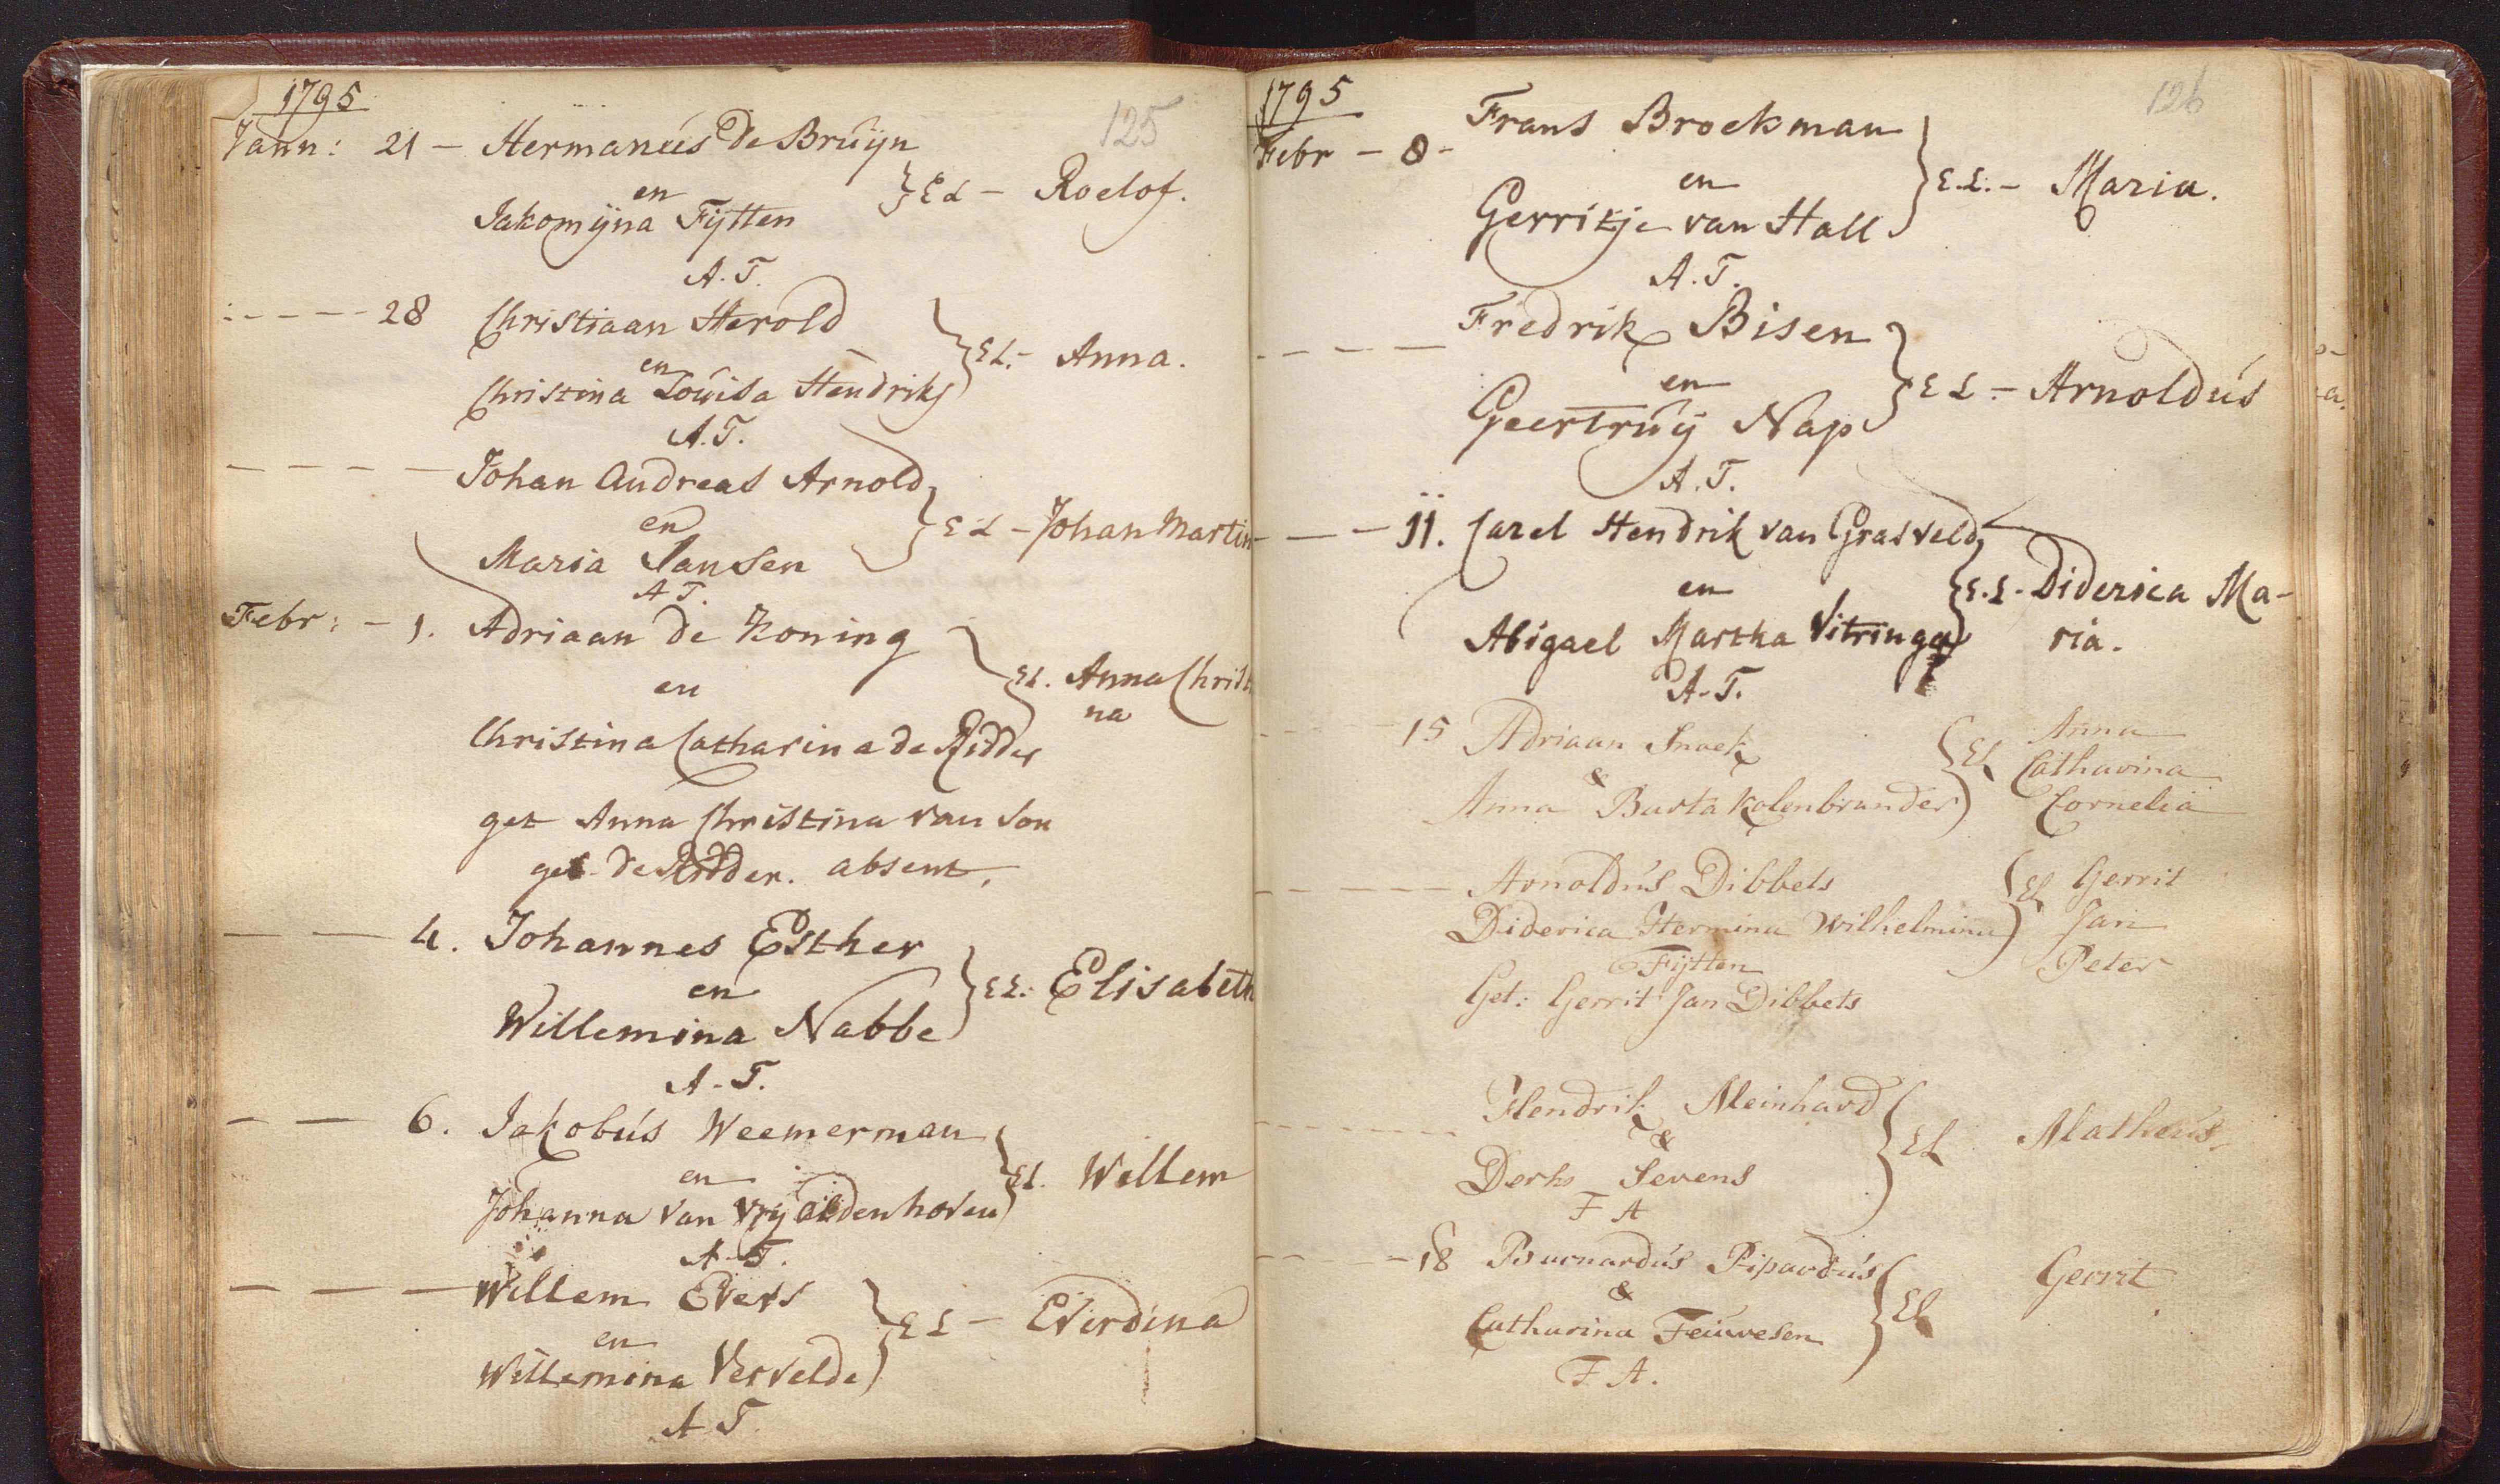 1795
125
Jann: 21 - Hermanus de Bruyn
en } EL - Roelof.
Jakomijna Fijtten
A.T.
28 Christiaan Herold
en } EL - Anna.
Christina Louisa Hendriks
A.T.
Johan Andreas Arnold
en } EL - Johan Martin
Maria Jansen
A T.
Febr: - 1. Adriaan de Koning
en } EL. Anna Christi
na
Christina Catharina de Ridder
get Anna Christina van Son
get. de Ridder. absent.
4. Johannes Esther
en } EL. Elisabeth
Willemina Nabbe
A.T.
6. Jakobus Weemerman
en } EL. Willem
Johanna van Vrij aldenhoven
A.T.
Willem Evers
en } EL - Everdina
Willemina Vervelde
A T.
1795
126
Febr - 8 - Frans Broekman
en } E.L. - Maria.
Gerritje van Hall
A.T.
Fredrik Bisen
en } EL - Arnoldus
Geertruij Nap
A.T.
11. Carel Hendrik van Grasveld
en } E.L. - Diderica Ma-
Abigael Martha Vitringa ria.
A.T.
15 Adriaan Snoek Anna
& } EL Catharina
Anna Barta Kolenbrander Cornelia
Arnoldus Dibbets } EL Gerrit
Diderica Hermina Wilhelmina Jan
Fijtten Peter
Get: Gerrit Jan Dibbets
Hendrik Meinhard
& } EL Matheus
Derks Sevens
F A
18 Burnardus Ripardus
& } EL Gerrit
Catharina Teuwesen
F A.